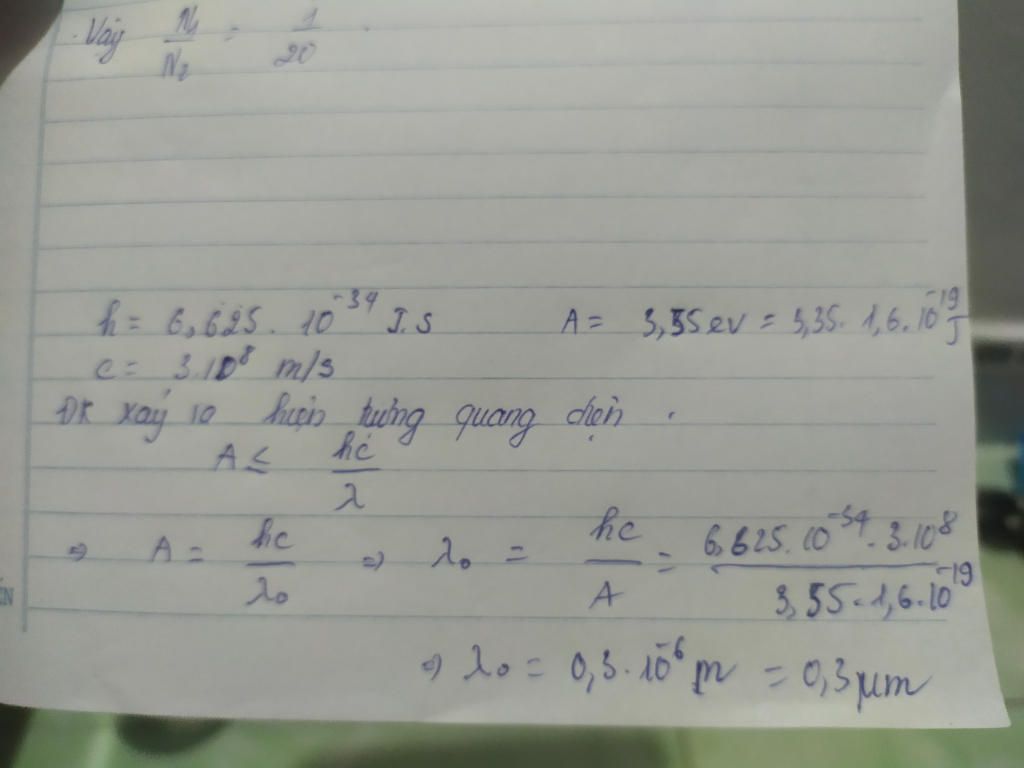 . Vậy N₁/N₂ = 1/20 .
h = 6,625. 10⁻³⁴ J.s A = 3,55 ev = 3,35. 1,6.10⁻¹⁹ J
c = 3.10⁸ m/s
ĐK xảy ra hiện tượng quang điện .
A ≤ hc/λ
⇒ A = hc/λ₀ ⇒ λ₀ = hc/A = 6,625.10⁻³⁴. 3.10⁸/3,55.1,6.10⁻¹⁹
⇒ λ₀ = 0,3.10⁻⁶ m = 0,3 μm